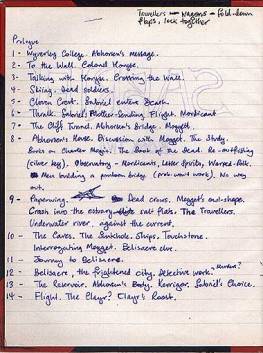 Travellers - waggons - fold-down
flaps, lock together
Prologue
1 - Wyverley College. Abhorsen's message.
2 - To the Wall. Colonel Horyse.
3 - Talking with Horyse. Crossing the Wall.
4 - Skiing. Dead soldiers.
5 - Cloven Crest. Sabriel enters Death.
6 - Thralk. Sabriel's Mother-Sending. Flight. Mordicant
7 - The Cliff Tunnel. Abhorsen's Bridge. Mogget.
8 - Abhorsen's House. Discussion with Mogget. The Study.
Books on Charter Magic. The Book of the Dead. Re-outfitting
(silver key). Observatory - Mordicants, Lesser spirits,
Men building a pontoon bridge (pick-work work). No way
out.
9 - Paperwing. Dead crows. Mogget's own-shape.
Crash into the estuary salt flats. The Travellers.
Underwater river, against the current.
10 - The Caves. The Sinkhole. Ships. Touchstone.
Interrogating Mogget. Belisaere clue.
11 - Journey to Belisaere.
12 - Belisaere, the frightened city. Detective work.
13 - The Reservoir. Abhorsen's Body. Kerrigor. Sabriel's Choice.
14 - Flight. The Clayr? Clayr's Roost.